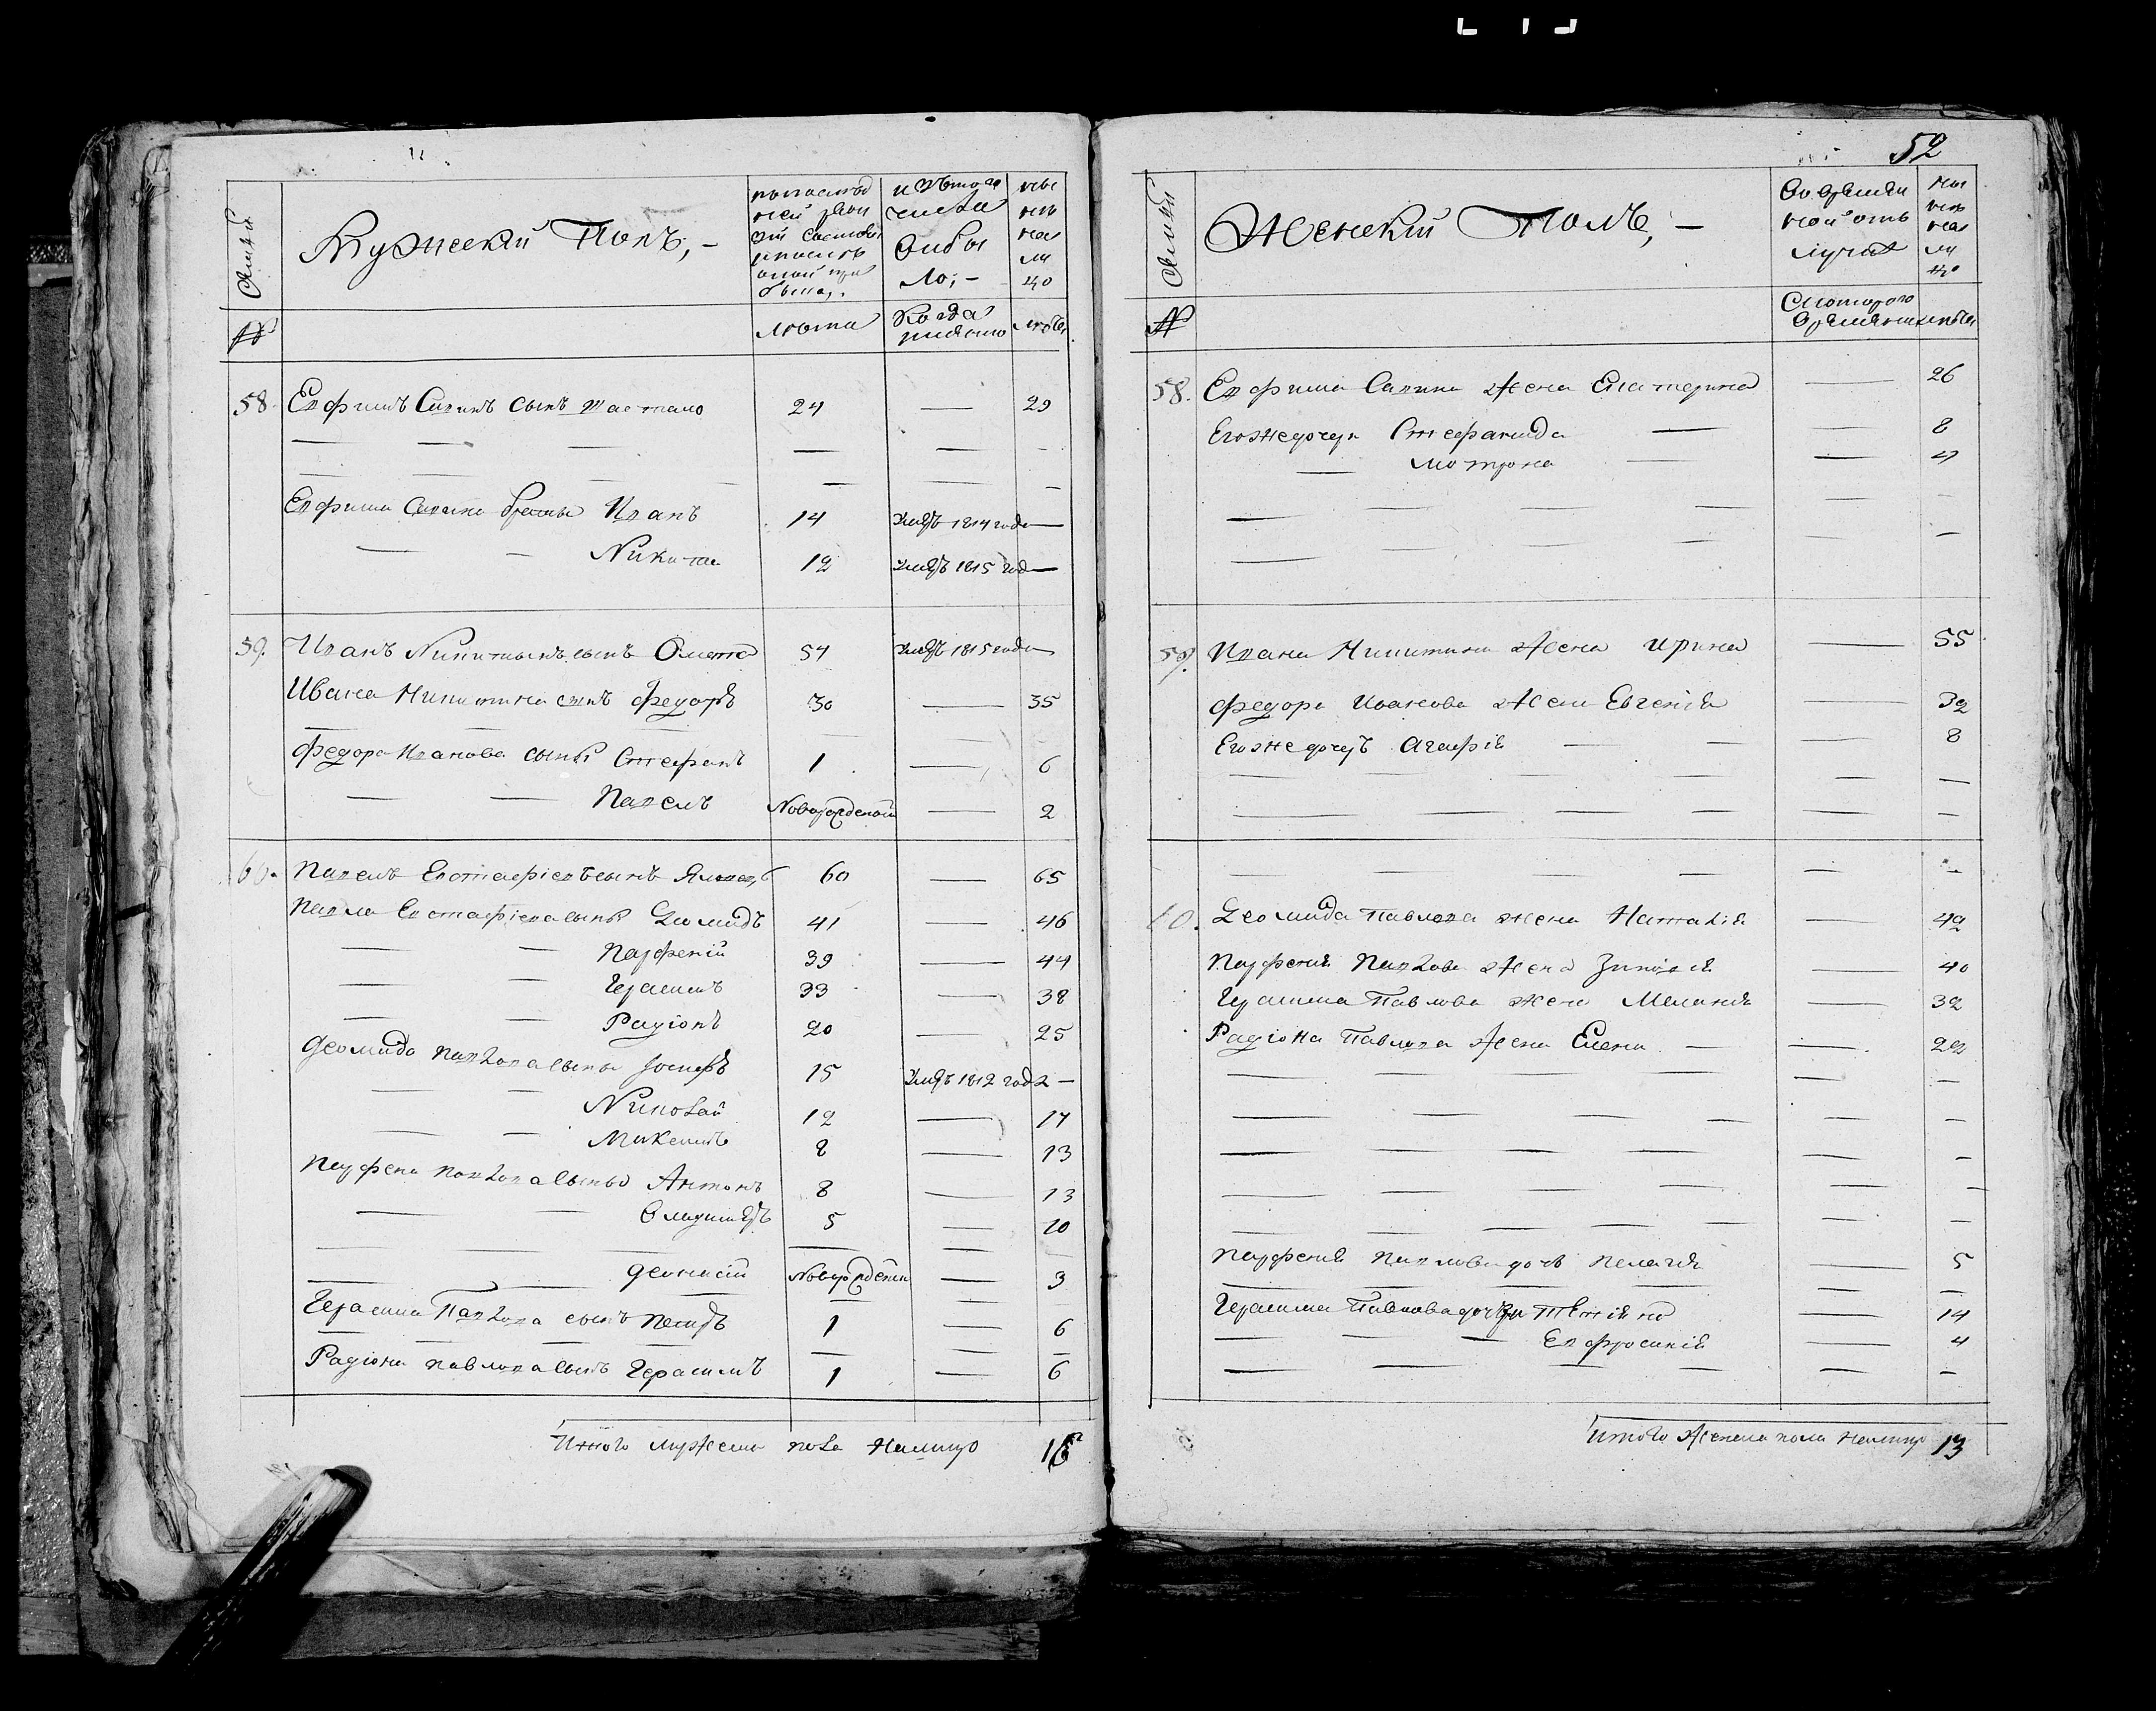 Мужескій Полъ, —
Семьи
по послѣд
ней реви
зіи состоял
и послѣ
оной при
было
изъ того
числа
выбы
ло; —
ны
нѣ
на
ли
цо
№
Лѣта
Когда
именно
Лѣты
58. Евфимъ Савинъ сынъ 24 — 29
Евфима Савина братья Иванъ 14 умеръ 1814 года —
— — Никита 12 умеръ 1815 года —
59. Иванъ Никитинъ сынъ 54 умеръ 1815 года
Ивана Никитина сынъ Федоръ 30 — 35
Федора Иванова сыны Стефанъ 1 — 6
— — Павелъ Новорожденный — 2
60. Павелъ Евстафіевъ сынъ 60 — 65
Павла Евстафіева сыны Деомидъ 41 — 46
— — Парфеній 39 — 44
— — Герасимъ 33 — 38
— — Радіонъ 20 — 25
Деомида Павлова сыны Іосифъ 15 умеръ 1812 года —
— — Николай 12 — 17
— — Максимъ 8 — 13
Парфена Павлова сыны Антонъ 8 — 13
— — Владимиръ 5 — 10
— — Деонисій Новорожден — 3
Герасима Павлова сынъ Петръ 1 — 6
Радіона Павлова сынъ Герасимъ 1 — 6
Итого мужеска пола налицо 16
52
Женскій Полъ, —
Семьи
Во времен
ной отъ
лучке
ны
нѣ
на
ли
цо
№
Съ котораго
времени
лѣты
58. Евфима Савина жена Екатерина — 26
Его же дочери Стефанида — — 8
— Мотрона — — 4
59. Ивана Никитина жена Ирина — 55
Федора Иванова жена Евгенія — 32
Его же дочерь Агафія — — — 8
60. Деомида Павлова жена Наталія — 42
Парфенія Павлова жена Зиновія — 40
Герасима Павлова жена Меланія — 32
Радіона Павлова жена Елена — — 22
Парфенія Павлова дочь Пелагія — 5
Герасима Павлова дочери Тетіяна — 14
— — — Евфросинія — 4
Итого женска пола налицо 13